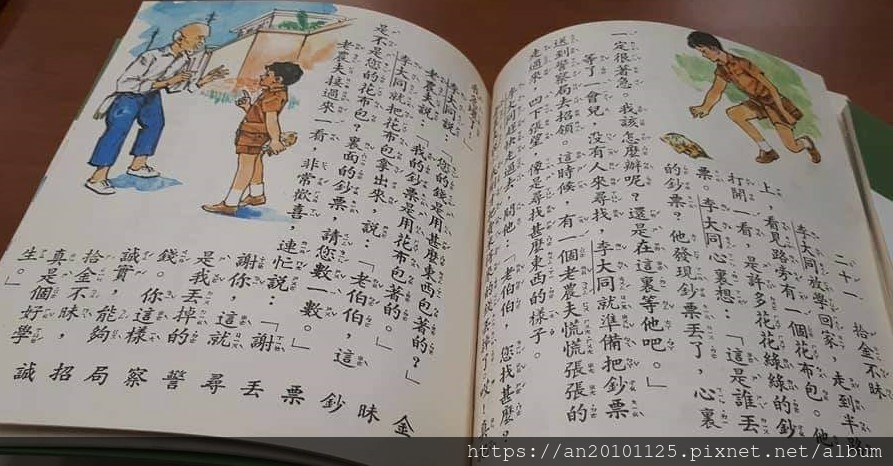 二十一　拾金不昧
李大同放學回家，走到半路
上，看見路旁有一個花布包。他
打開一看，是許多花花綠綠的鈔
票。李大同心裏想：「這是誰丟
的鈔票？他發現鈔票丟了，心裏
一定很著急。我該怎麼辦呢？還是在這裏等他吧。」
等了一會兒，沒有人來尋找，李大同就準備把鈔票
送到警察局去招領。這時候，有一個老農夫慌慌張張的
走過來，四下張望，像是尋找甚麼東西的樣子。
李大同趕快走過去，問他：「老伯伯，您找甚麼？」
李大同說：「您的錢是用甚麼東西包著的？」
老農夫說：「我的鈔票是用花布包著的。」
李大同就把花布包拿出來，說：「老伯伯，這
是不是您的花布包？裏面的鈔票，請您數一數。」
老農夫接過來一看，非常歡喜，連忙說：「謝
謝你，這就
是我丟掉的
錢。你這樣
誠實，能夠
拾金不昧，
真是個好學
生。」
昧 鈔 票 丟 尋 警 察 局 招 誠
金
https://an20101125.pixnet.net/album